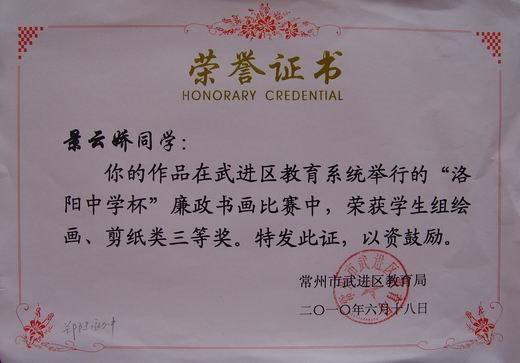 荣誉证书
HONORARY CREDENTIAL
景云娇同学：
你的作品在武进区教育系统举行的“洛
阳中学杯”廉政书画比赛中，荣获学生组绘
画、剪纸类三等奖。特发此证，以资鼓励。
常州市武进区教育局
二〇一〇年六月十八日